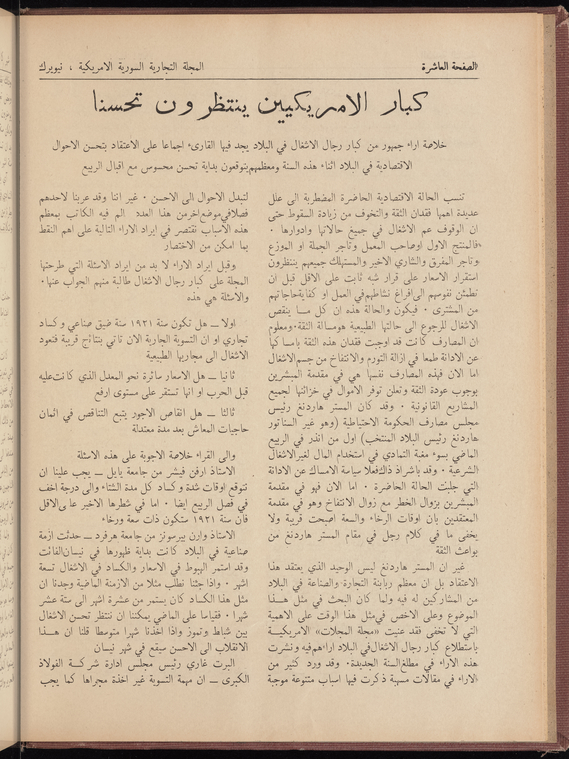 الصفحة العاشرة
المجلة التجارية السورية الامريكية ، نيويرك
كبار الامريكيين ينتظرون تحسنا
خلاصة اراء جمهور من كبار رجال الاشغال في البلاد يجد فيها القارىء اجماعا على الاعتقاد بتحسن الاحوال
الاقتصادية في البلاد اثناء هذه السنة ومعظمهم يتوقعون بداية تحسن محسوس مع اقبال الربيع
تنسب الحالة الاقتصادية الحاضرة المضطربة الى علل
عديدة اهمها فقدان الثقة والتخوف من زيادة السقوط حتى
ان الوقوف عم الاشغال في جميع حالاتها وادوارها ٠
فالمنتج الاول اوصاحب المعمل وتاجر الجملة او الموزع
وتاجر المفرق والشاري الاخير والمستهلك جميعهم ينتظرون
استقرار الاسعار على قرار شبه ثابت على الاقل قبل ان
تطمئن نفوسهم الى افراغ نشاطهم في العمل او كفاية حاجاتهم
من المشترى ٠ فيكون والحالة هذه ان كل ما ينقص
الاشغال للرجوع الى حالتها الطبيعية هو مسالة الثقة٠ومعلوم
ان المصارف كانت قد اوجبت فقدان هذه الثقة بامساكها
عن الادانة طمعا في ازالة التورم والانتفاخ من جسم الاشغال
اما الان فهذه المصارف نفسها هي في مقدمة المبشرين
بوجوب عودة الثقة وتعلن توفر الاموال في خزائنها لجميع
المشاريع القانونية ٠ وقد كان المستر هاردنغ رئيس
مجلس مصارف الحكومة الاحتياطية (وهو غير السناتور
هاردنغ رئيس البلاد المنتخب) اول من انذر في الربيع
الماضي بسوء مغبة التمادي في استخدام المال لغير الاشغال
الشرعية ٠ وقد باشر اذ ذاك فعلا سياسة الامساك عن الادانة
التي جلبت الحالة الحاضرة ٠ اما الان فهو في مقدمة
المبشرين بزوال الخطر مع زوال الانتفاخ وهو في مقدمة
المعتقدين بان اوقات الرخاء والسعة اصبحت قريبة ولا
يخفى ما في كلام رجل في مقام المستر هاردنغ من
بواعث الثقة
غير ان المستر هاردنغ ليس الوحيد الذي يعتقد هذا
الاعتقاد بل ان معظم ربابنة التجارة والصناعة في البلاد
من المشاركين له فيه ولما كان البحث في مثل هذا
الموضوع وعلى الاخص في مثل هذا الوقت على الاهمية
التي لا تخفى فقد عنيت «مجلة المجلات» الامريكية
باستطلاع كبار رجال الاشغال في البلاد اراءهم فيه ونشرت
هذه الاراء في مطلع السنة الجديدة٠ وقد ورد كثير من
الاراء في مقالات مسهبة ذكرت فيها اسباب متنوعة موجبة
لتبدل الاحوال الى الاحسن ٠ غير اننا وقد عربنا لاحدهم
فصلا في موضع اخر من هذا العدد الم فيه الكاتب بمعظم
هذه الاسباب نقتصر في ايراد الاراء التالية على اهم النقط
بما امكن من الاختصار
وقبل ايراد الاراء لا بد من ايراد الاسئلة التي طرحتها
المجلة على كبار رجال الاشغال طالبة منهم الجواب عنها٠
والاسئلة هي هذه
اولا ـ هل تكون سنة ١٩٢١ سنة ضيق صناعي وكساد
تجاري او ان التسوية الجارية الان تاتي بنتائج قريبة فتعود
الاشغال الى مجاريها الطبيعية
ثانيا ـ هل الاسعار سائرة نحو المعدل الذي كانت عليه
قبل الحرب او انها تستقر على مستوى ارفع
ثالثا ـ هل انقاص الاجور يتبع التناقص في اثمان
حاجيات المعاش بعد مدة معتدلة
والى القراء خلاصة الاجوبة على هذه الاسئلة
الاستاذ ارفن فيشر من جامعة يايل ـ يجب علينا ان
نتوقع اوقات شدة وكساد كل مدة الشتاء والى درجة اخف
في فصل الربيع ايضا ٠ اما في شطرها الاخير على الاقل
فان سنة ١٩٢١ ستكون ذات سعة ورخاء
الاستاذ وارن بيرسونز من جامعة هرفرد ـ حدثت ازمة
صناعية في البلاد كانت بداية ظهورها في نيسان الفائت
وقد استمر الهبوط في الاسعار والكساد في الاشغال تسعة
اشهر ٠ واذا جئنا نطلب مثلا من الازمنة الماضية وجدنا ان
مثل هذا الكساد كان يستمر من عشرة اشهر الى ستة عشر
شهرا ٠ فقياسا على الماضي يمكننا ان ننتظر تحسن الاشغال
بين شباط وتموز واذا اخذنا شهرا متوسطا قلنا ان هذا
الانقلاب الى الاحسن سيقع في شهر نيسان
البرت غاري رئيس مجلس ادارة شركة الفولاذ
الكبرى ـ ان مهمة التسوية غير اخذة مجراها كما يجب